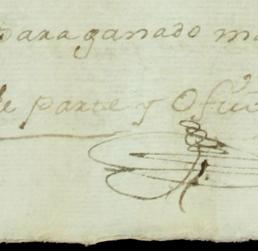 para ganado ma
de parte y Ofic